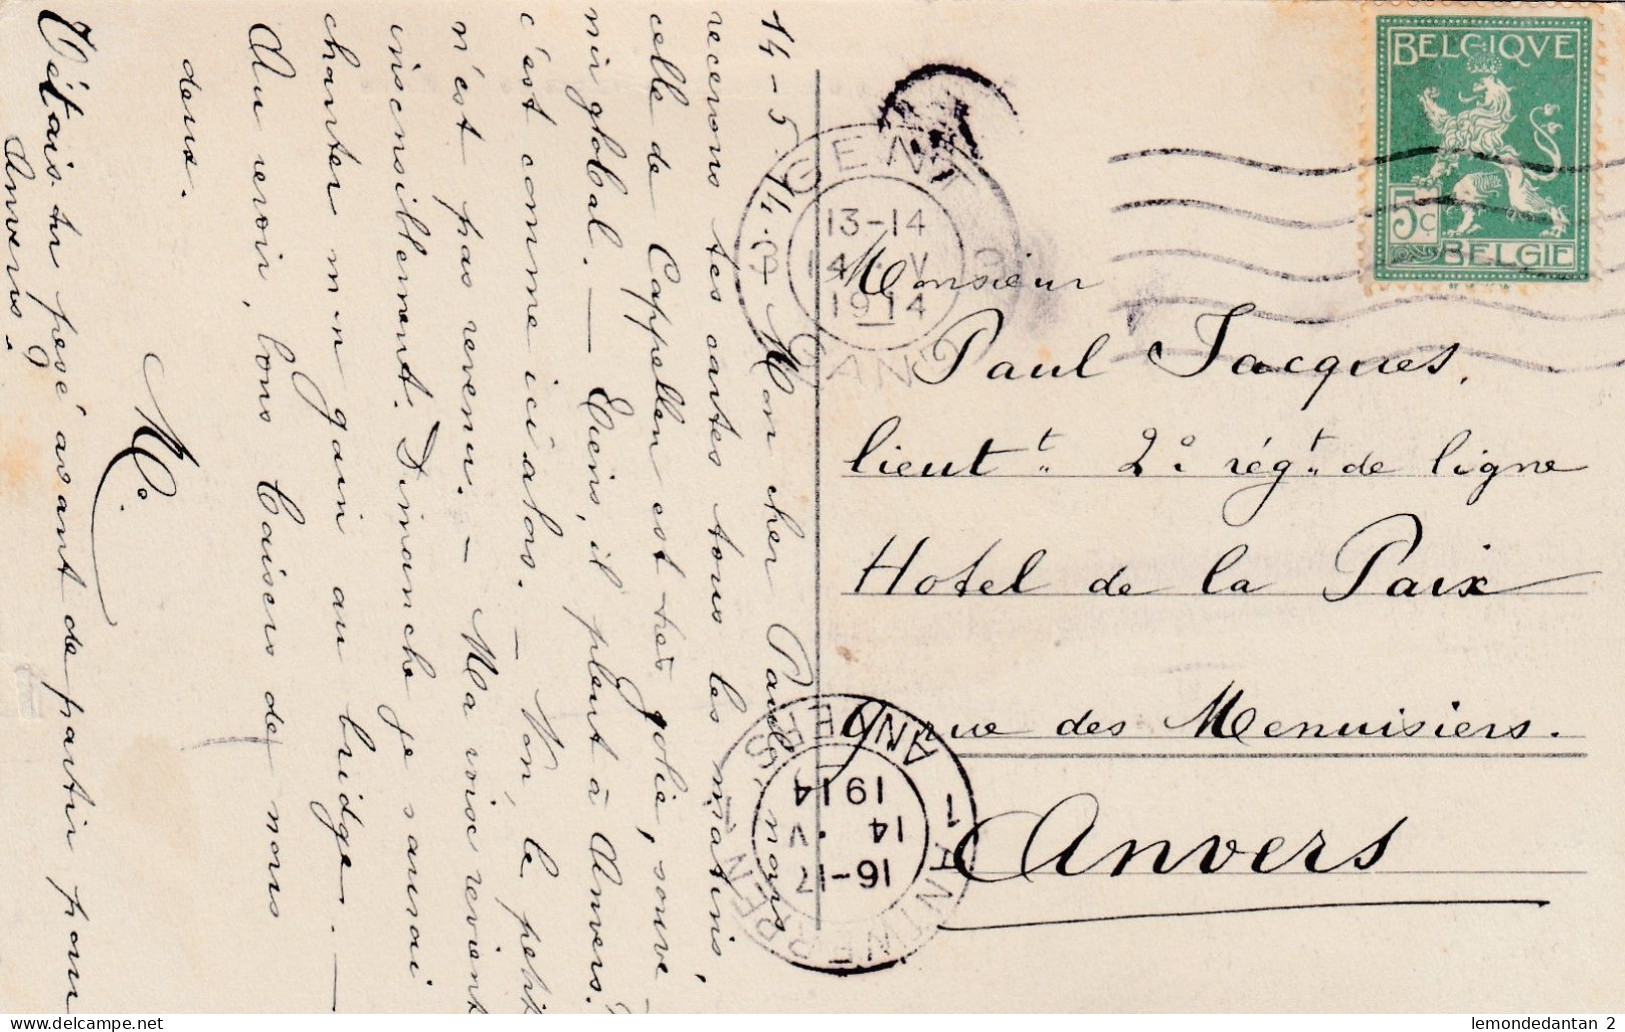 14-5-14. Mon cher Paul, nous
recevons tes cartes tous les matins,
celle de Cappellen est très jolie, souve-
nir global. — Tiens, il pleut à Anvers?
c'est comme ici alors. — Non, le petit
n'est pas revenu. — Ma voix revient
insensiblement. Dimanche je saurai
chanter m n gain au bridge. —
Au revoir, bons baisers de nous
deux.
M.
T'étais-tu pesé avant de partir pour
Anvers?
BELGIQVE
5c
BELGIE
GENT
13-14
14 V
1914
GAND
Monsieur
Paul Jacques,
lieutt. 2e. régt. de ligne
Hotel de la Paix
rue des Menuisiers.
Anvers
ANTWERPEN
16-17
14 V
1914
lemondedantan 2